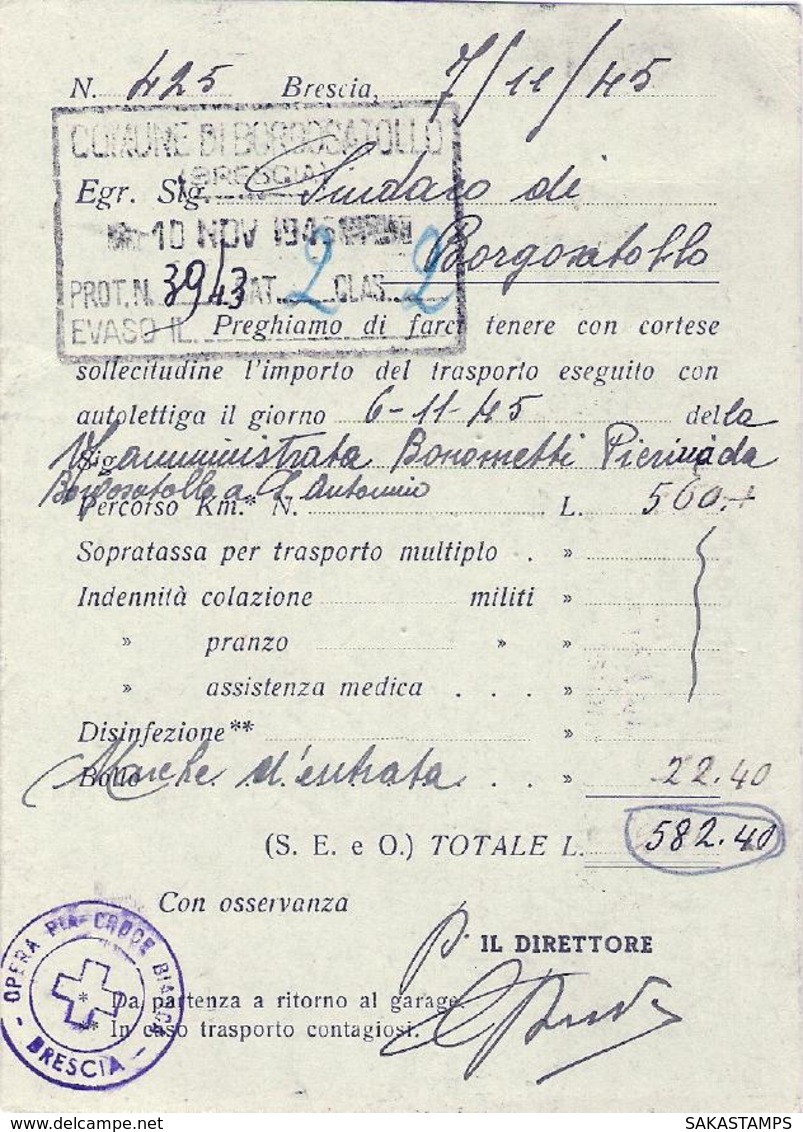 N. 425 Brescia, 7/11/45
COMUNE DI BORGOSATOLLO
(BRESCIA)
Egr. Sig. Sindaco di
10 NOV 194
Borgosatollo
PROT. N. 39/43 CAT. 2 CLAS. 2
EVASO IL
Preghiamo di farci tenere con cortese
sollecitudine l'importo del trasporto eseguito con
autolettiga il giorno 6-11-45 della
Sig. amministrata Bonometti Pierina da
Borgosatollo a S. Antonio
Percorso Km.* N. L. 560.-
Sopratassa per trasporto multiplo . »
Indennità colazione militi »
» pranzo » »
» assistenza medica . . . »
Disinfezione** »
Bollo Marche d'entrata . . » 22.40
(S. E. e O.) TOTALE L. 582.40
Con osservanza
p. IL DIRETTORE
OPERA PIA CROCE BIANCA
- BRESCIA -
* Da partenza a ritorno al garage.
** In caso trasporto contagiosi.
SAKASTAMPS